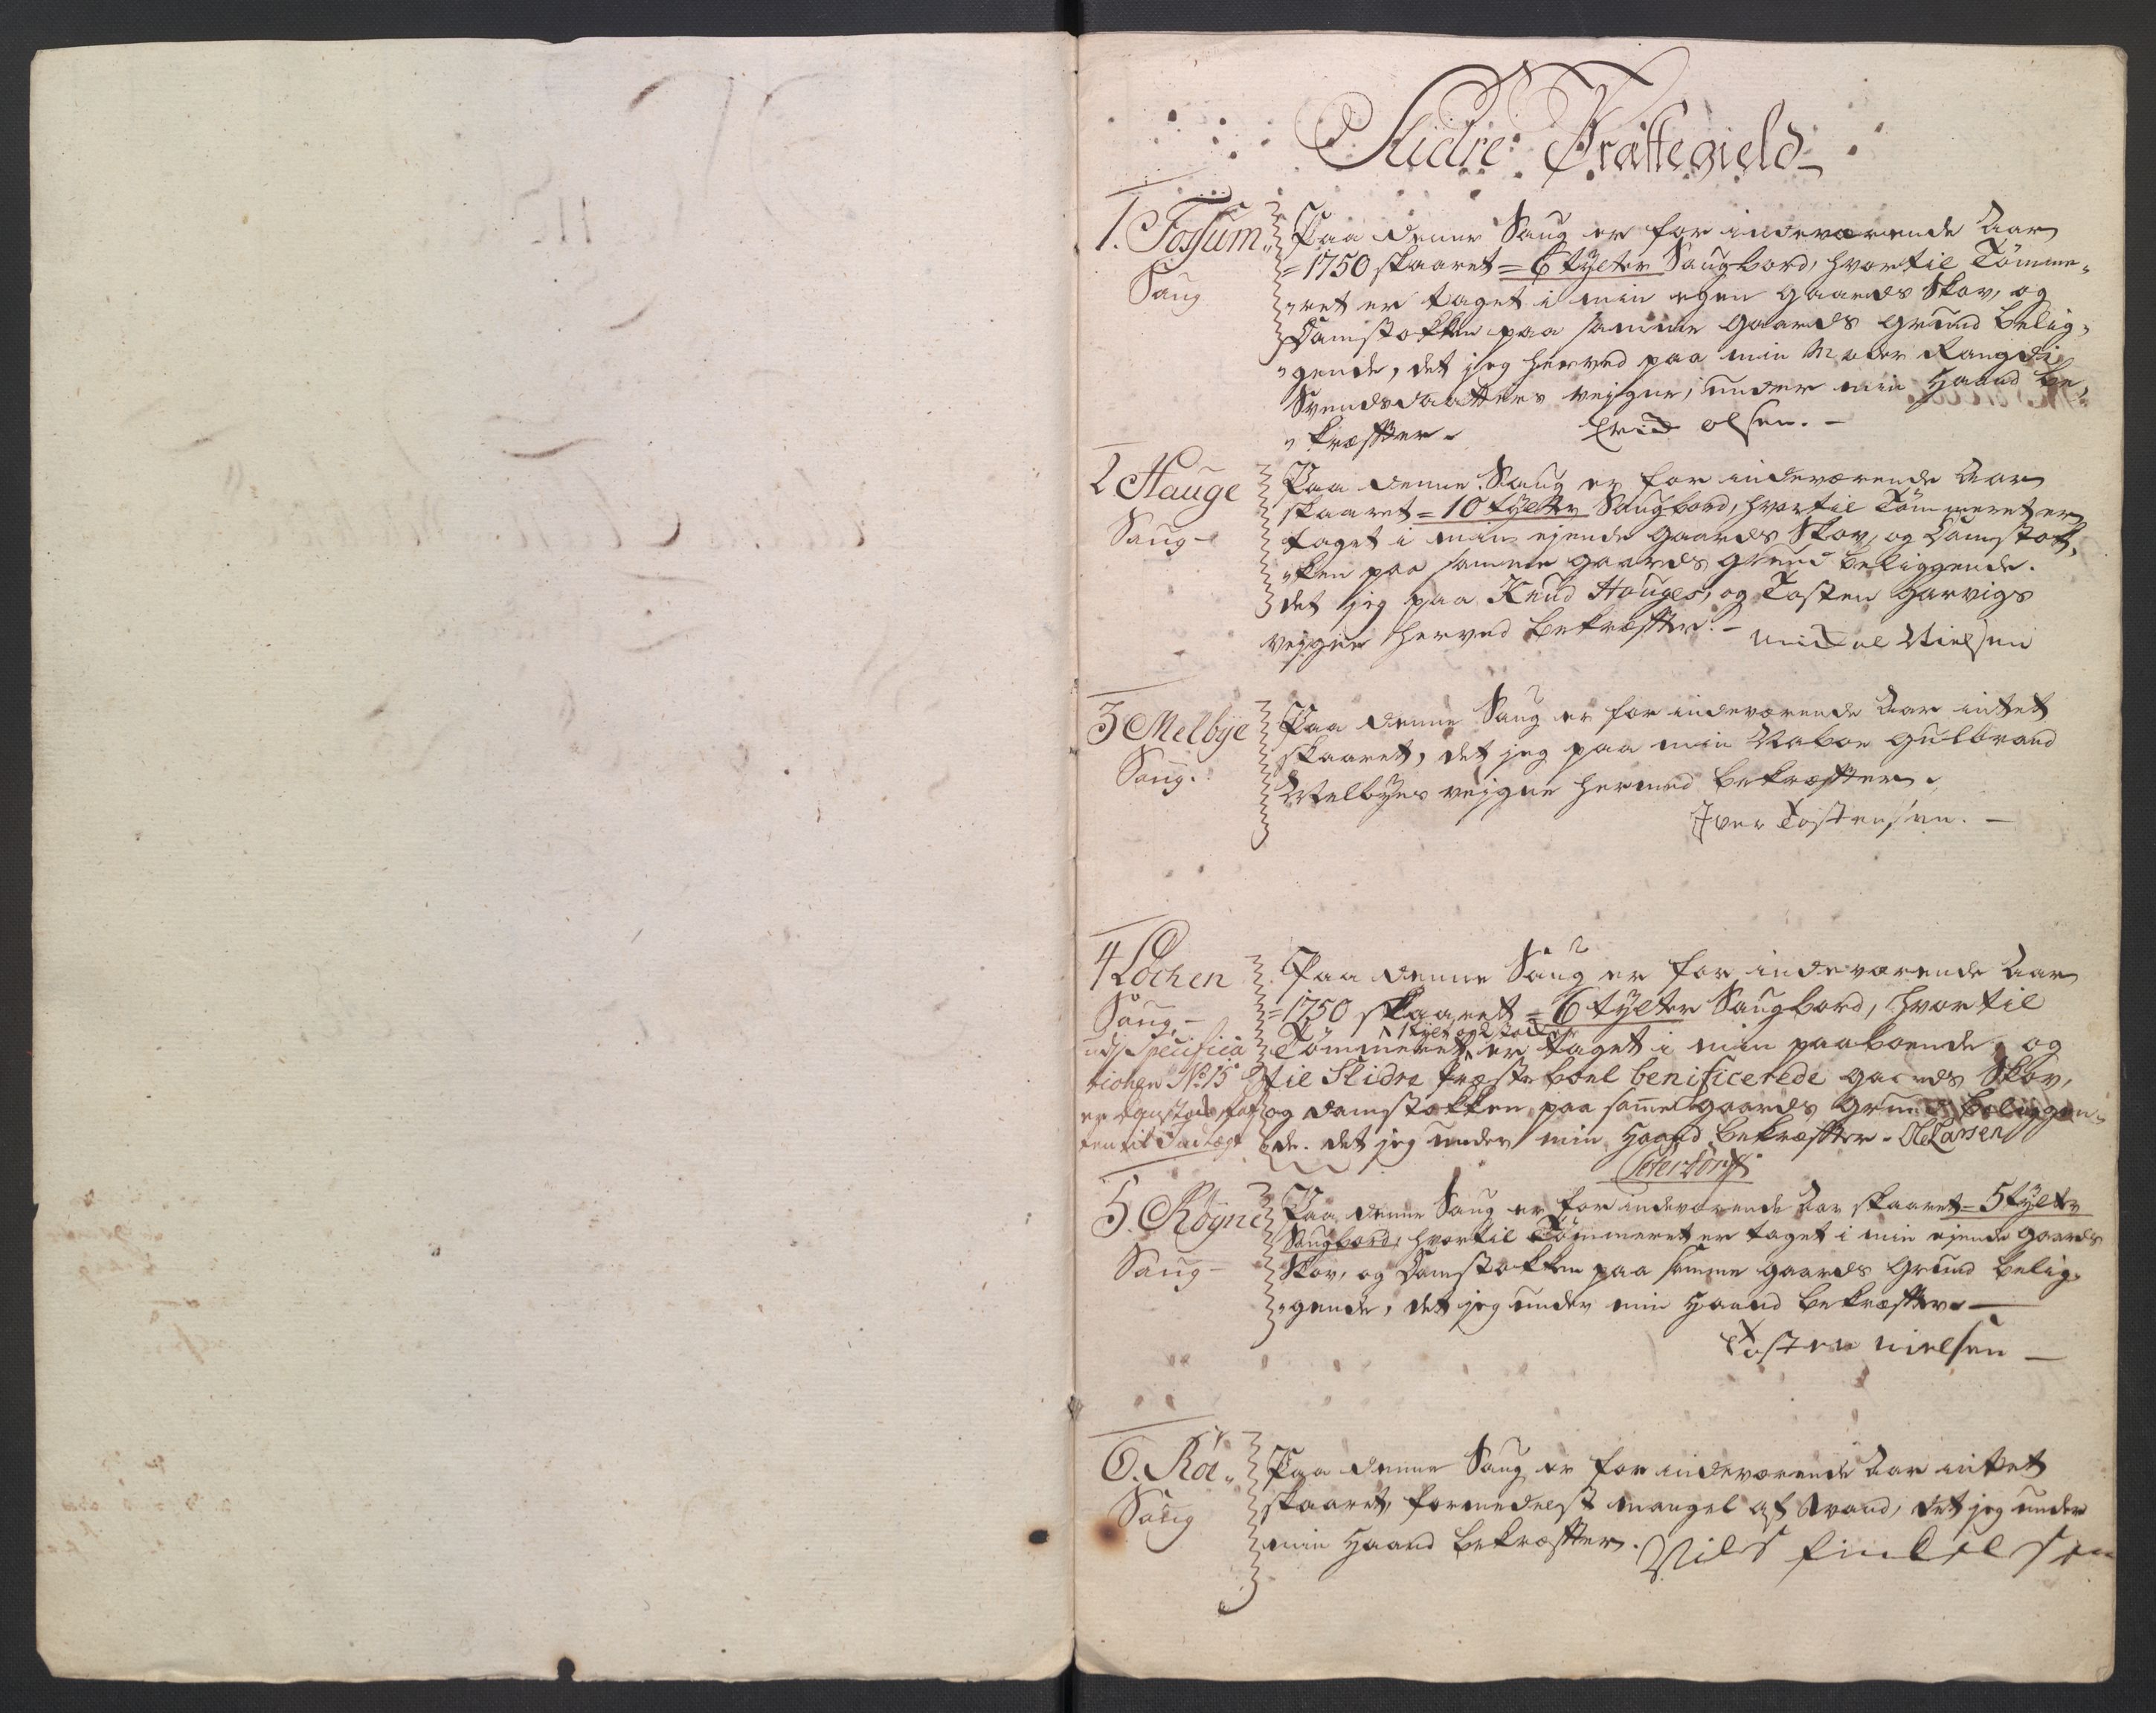 Slidre Præstegield
1. Fossum
Saug
Paa denne Saug er for indeværende Aar
= 1750 skaaret = 6 tylter Saugbord, hvortil Tömme„
„ret er taget i min egen gaards Skov, og
Damstokken paa samme gaards grund belig„
„gende, det jeg herved paa min Moder Rangdi
Svendsdaatters vejgne, under min Haand be„
„kræffter.
Erid olsen. –
2 Hauge
Saug –
Paa denne Saug er for indeværende Aar
skaaret = 10 tylter Saugbord, hvortil Tömmeret er
taget i min ejende gaards Skov, og Damstok„
„ken paa samme gaards grund beliggende.
det jeg paa Knud Hauges, og Tosten Garvigs
vejgne herved bekræffter. –
Mickel Nielsen
3 Melbye
Saug.
Paa denne Saug er for indeværende Aar intet
skaaret, det jeg paa min Naboe gulbrand
Melbyes vejgne hermed bekræffter.
Iver Tostensen. –
4 Lochen
Saug. –
Paa denne Saug er for indeværende Aar
= 1750 skaaret = 6 tylter Saugbord, hvortil
Tömmeret er taget i min paaboende og
til Slidre Præsteboel benificerede gaards Skov,
og damstokken paa samme gaards grund beliggen„
de. det jeg under min Haand bekræffter. Ole Larsen
udj Specifica
tionen No 15
5. Röyne
Saug –
Paa denne Saug er for indeværende Aar skaaret = 5 tylter
Saugbord, hvortil Tömmeret er taget i min ejende gaards
Skov, og Damstokken paa samme gaards Grund belig„
„gende, det jeg under min Haand bekræffter. –
Tosten Nielsen –
6. Röe„
Saug
Paa denne Saug er for indeværende Aar intet
skaaret, formedelst mangel af Vand, det jeg under
min Haand bekræffter.
Nils Findelsen